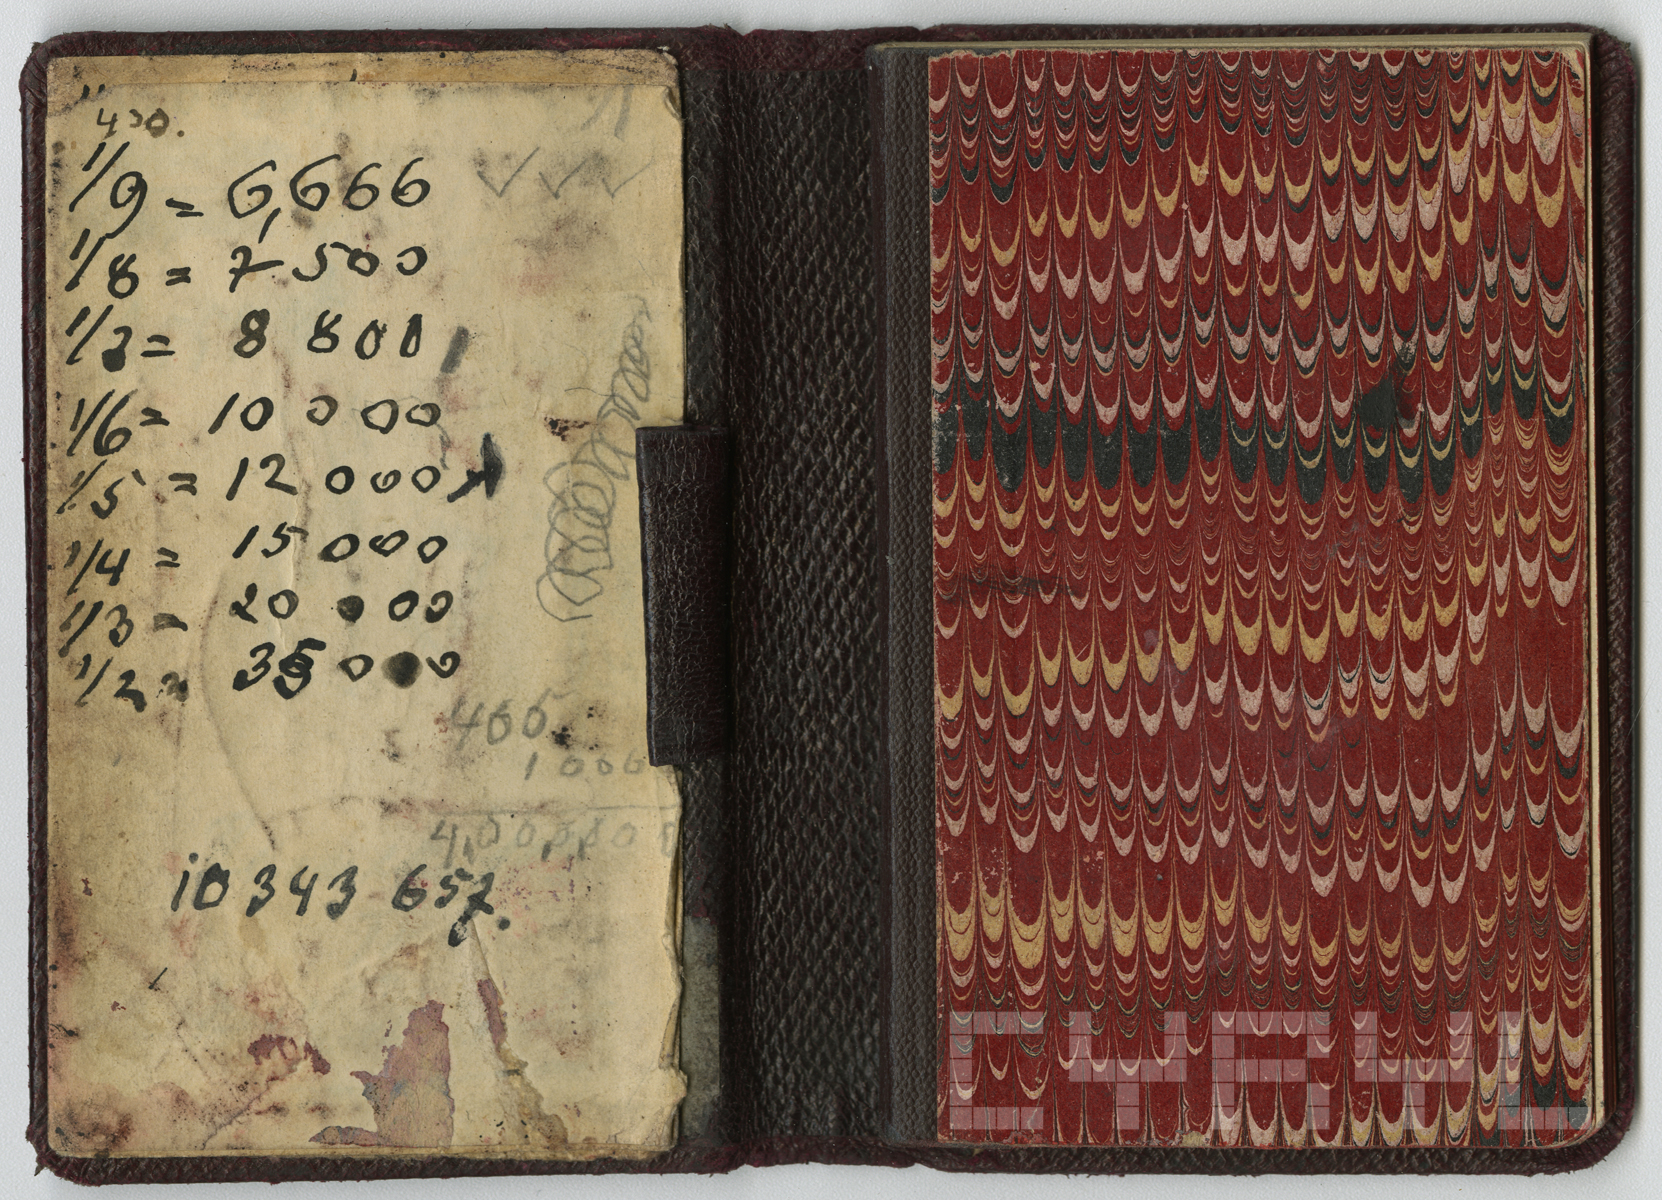 430.
1/9 = 6,666
1/8 = 7500
1/7 = 8 800
1/6 = 10 000
1/5 = 12 000
1/4 = 15 000
1/3 = 20 000
1/2 = 35 000
400
1000
4,00000
10 343 657.
CYRYL